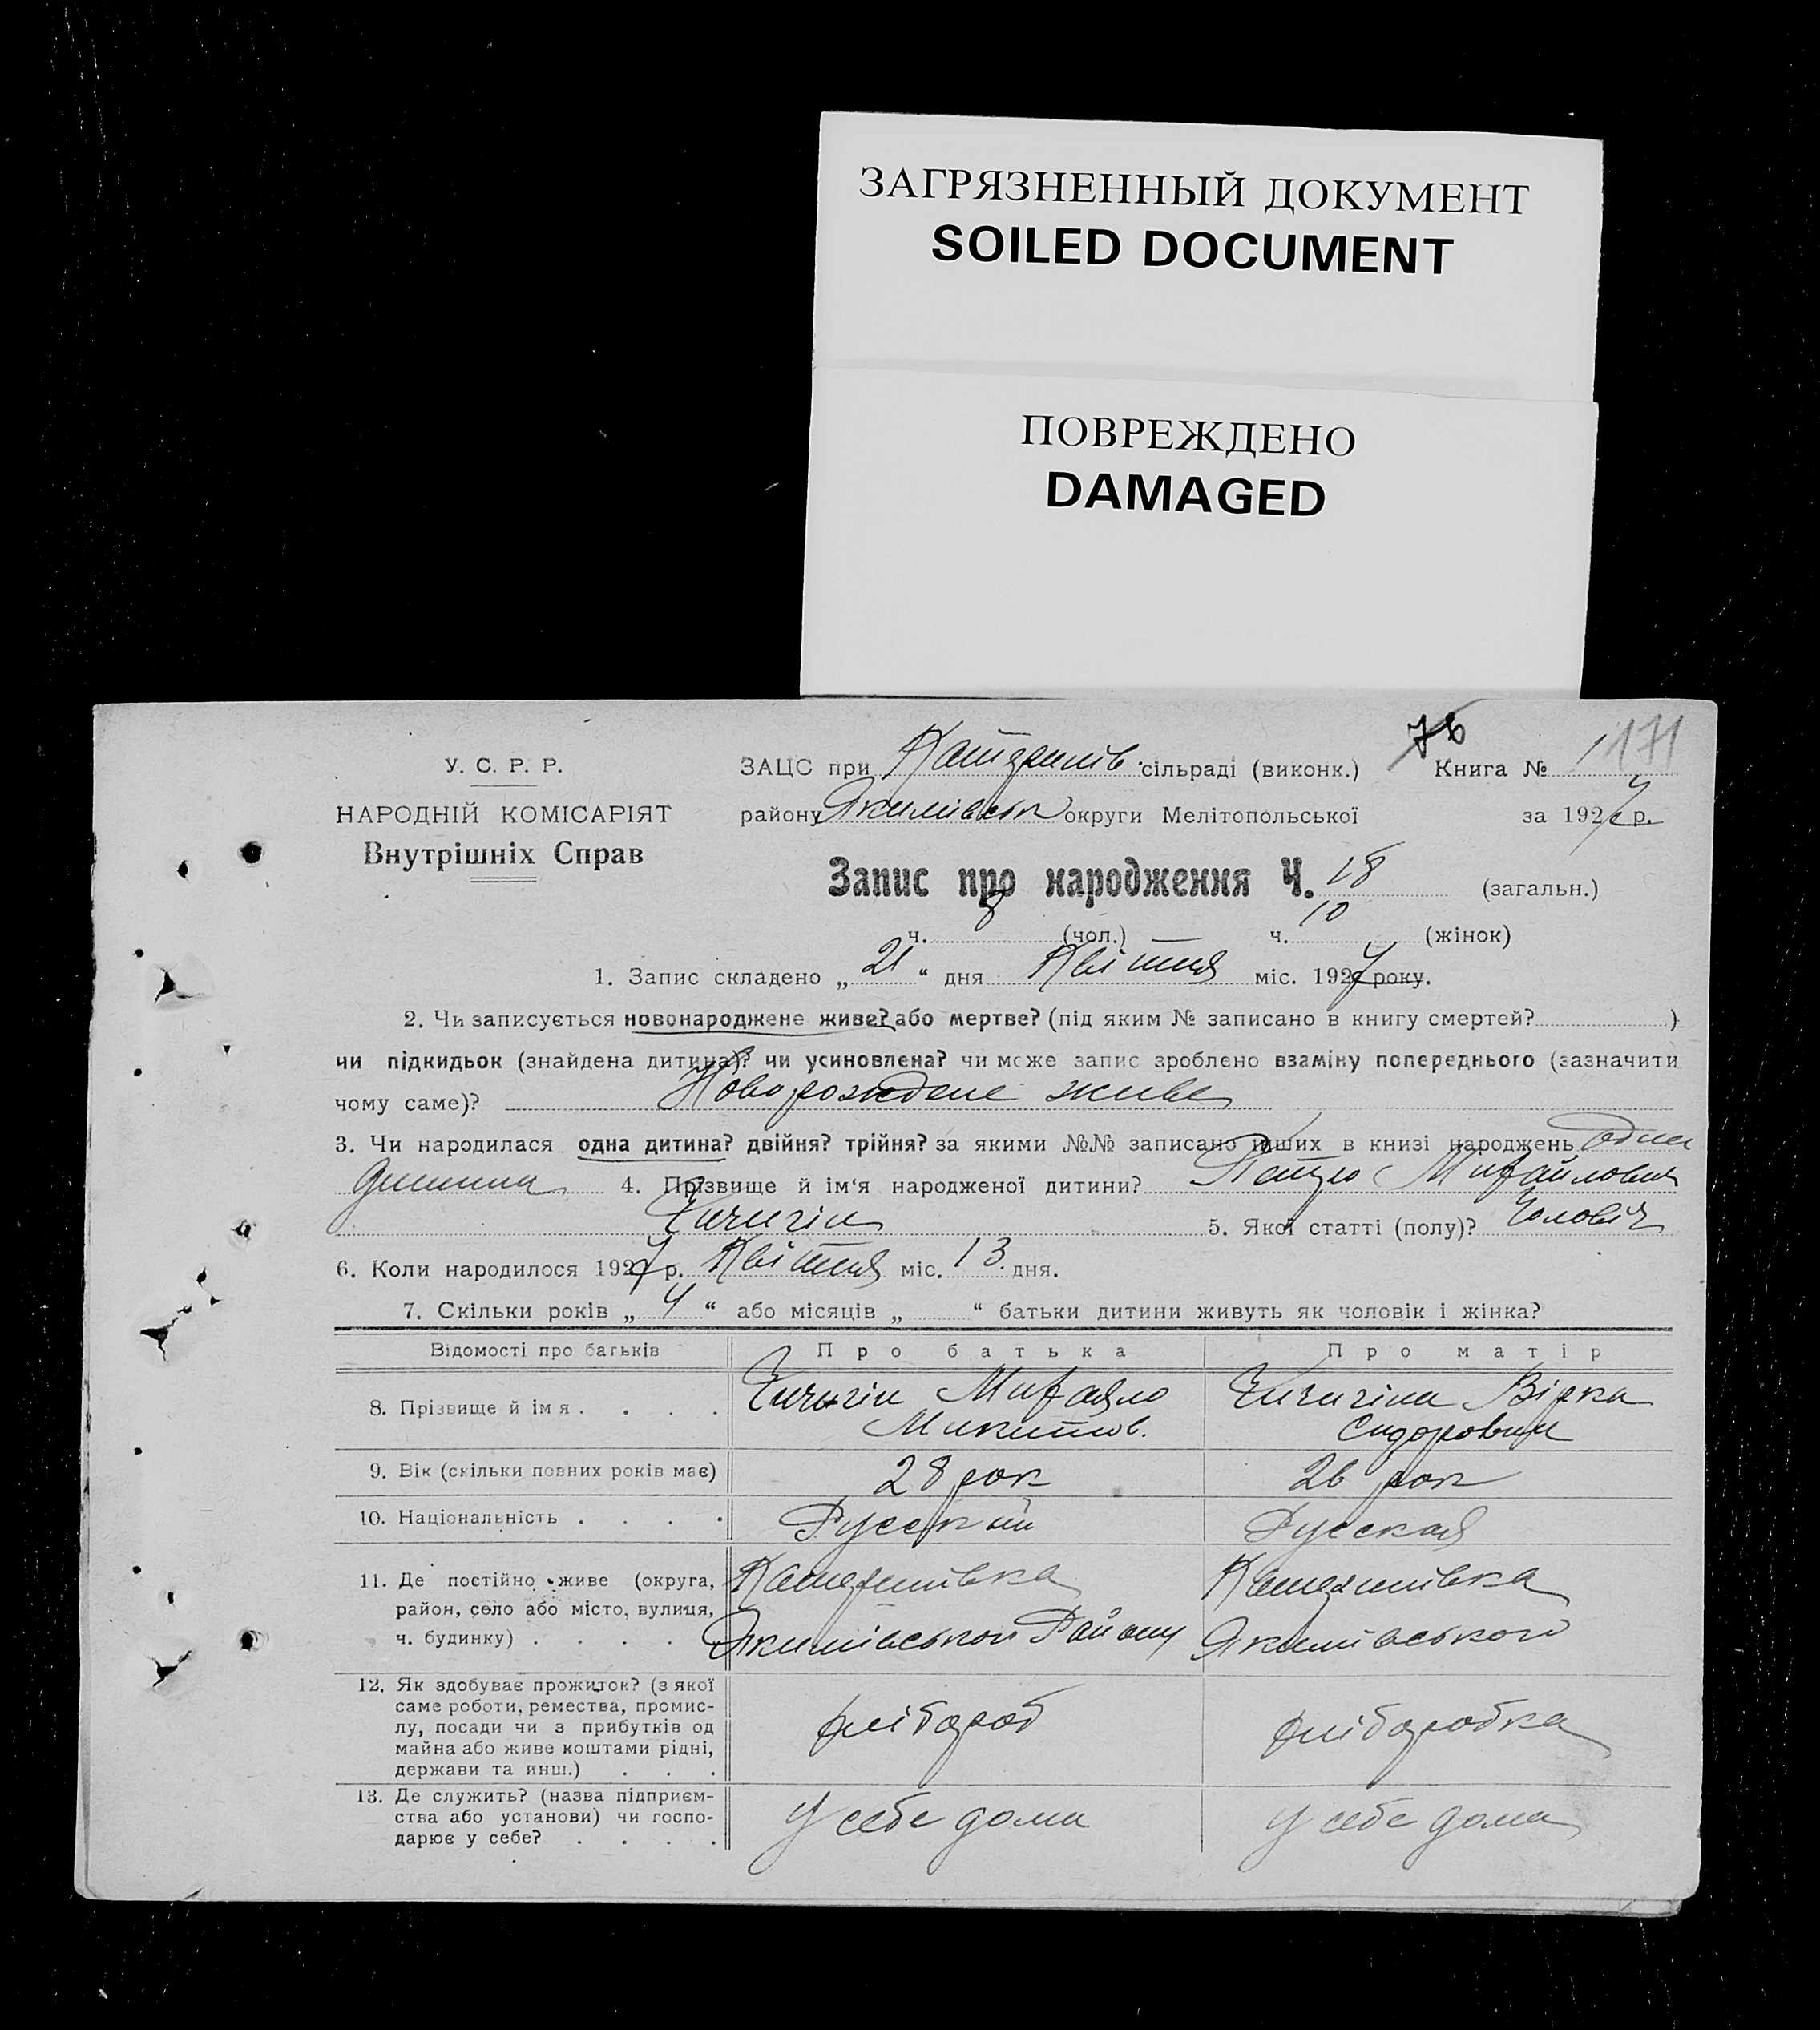 ЗАГРЯЗНЕННЫЙ ДОКУМЕНТ
SOILED DOCUMENT
ПОВРЕЖДЕНО
DAMAGED
76
171
У. С. Р. Р.
НАРОДНІЙ КОМІСАРІЯТ
Внутрішніх Справ
ЗАЦС при сільраді (виконк.) Книга № 1
району Якимівськ округи Мелітопольської за 1927 р.
Запис про народження Ч. 18 (загальн.)
ч. 8 (чол.) ч. 10 (жінок)
1. Запис складено „ 21 “ дня Квітня міс. 1927 року.
2. Чи записується новонароджене живе? або мертве? (під яким № записано в книгу смертей? )
чи підкидьок (знайдена дитина)? чи усиновлена? чи може запис зроблено взаміну попереднього (зазначити
чому саме)? Новорождене живе
3. Чи народилася одна дитина? двійня? трійня? за якими №№ записано інших в книзі народжень одна
дитина 4. Прізвище й ім‘я народженої дитини? Михайлович
Чичигін 5. Якої статті (полу)? Чоловіч
6. Коли народилося 1927 р. Квітня міс. 13 дня.
7. Скільки років „ 4 “ або місяців „ “ батьки дитини живуть як чоловік і жінка?
Відомості про батьків Про батька Про матір
8. Прізвище й імя . . . . Чичигін Михайло Чичигіна Вірка
Микитов. Сидоровни
9. Вік (скільки повних років має) 28 рок 26 рок
10. Національність . . . . Русский Русская
11. Де постійно живе (округа, Катеринівка Катеринівка
район, село або місто, вулиця, 
ч. будинку) . . . . Якимівської Району Якимівського
12. Як здобуває прожиток? (з якої
саме роботи, ремества, промис-
лу, посади чи з прибутків од хлібороб хліборобка
майна або живе коштами рідні,
держави та инш.) . . .
13. Де служить? (назва підприєм-
ства або установи) чи госпо- У себе дома У себе дома
дарює у себе? . . . .